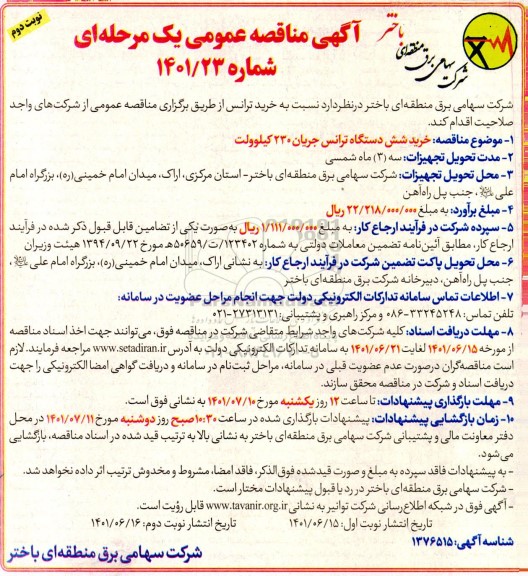 نوبت دوم
باختر
شرکت سهامی برق منطقه‌ای
آگهی مناقصه عمومی یک مرحله‌ای
شماره ۱۴۰۱/۲۳
شرکت سهامی برق منطقه‌ای باختر درنظردارد نسبت به خرید ترانس از طریق برگزاری مناقصه عمومی از شرکت‌های واجد
صلاحیت اقدام کند.
۱- موضوع مناقصه: خرید شش دستگاه ترانس جریان ۲۳۰ کیلوولت
۲- مدت تحویل تجهیزات: سه (۳) ماه شمسی
۳- محل تحویل تجهیزات: شرکت سهامی برق منطقه‌ای باختر- استان مرکزی، اراک، میدان امام خمینی(ره)، بزرگراه امام
علی ، جنب پل راه‌آهن
۴- مبلغ برآورد: به مبلغ ۲۲/۲۱۸/۰۰۰/۰۰۰ ریال
۵- سپرده شرکت در فرآیند ارجاع کار: به مبلغ ۱/۱۱۱/۰۰۰/۰۰۰ ریال به‌صورت یکی از تضامین قابل قبول ذکر شده در فرآیند
ارجاع کار، مطابق آئین‌نامه تضمین معاملات دولتی به شماره ۱۲۳۴۰۲/ت۵۰۶۵۹ه مورخ ۱۳۹۴/۰۹/۲۲ هیئت وزیران
۶- محل تحویل پاکت تضمین شرکت در فرآیند ارجاع کار: به نشانی اراک، میدان امام خمینی(ره)، بزرگراه امام علی ،
جنب پل راه‌آهن، دبیرخانه شرکت برق منطقه‌ای باختر
۷- اطلاعات تماس سامانه تدارکات الکترونیکی دولت جهت انجام مراحل عضویت در سامانه:
تلفن تماس: ۳۳۲۴۵۲۴۸-۰۸۶ و مرکز راهبری و پشتیبانی: ۲۷۳۱۳۱۳۱-۰۲۱
۸- مهلت دریافت اسناد: کلیه شرکت‌های واجد شرایط متقاضی شرکت در مناقصه فوق، می‌توانند جهت اخذ اسناد مناقصه
از مورخه ۱۴۰۱/۰۶/۱۵ لغایت ۱۴۰۱/۰۶/۲۱ به سامانه تدارکات الکترونیکی دولت به آدرس www.setadiran.ir مراجعه فرمایند. لازم
است مناقصه‌گران درصورت عدم عضویت قبلی در سامانه، مراحل ثبت‌نام در سامانه و دریافت گواهی امضا الکترونیکی را جهت
دریافت اسناد و شرکت در مناقصه محقق سازند.
۹- مهلت بارگذاری پیشنهادات: تا ساعت ۱۲ روز یکشنبه مورخ ۱۴۰۱/۰۷/۱۰ به نشانی فوق است.
۱۰- زمان بازگشایی پیشنهادات: پیشنهادات بارگذاری شده در ساعت ۱۰:۳۰ صبح روز دوشنبه مورخ ۱۴۰۱/۰۷/۱۱ در محل
دفتر معاونت مالی و پشتیبانی شرکت سهامی برق منطقه‌ای باختر به نشانی بالا به ترتیب قید شده در اسناد مناقصه، بازگشایی
می‌شود.
- به پیشنهادات فاقد سپرده به مبلغ و صورت قیدشده فوق‌الذکر، فاقد امضا، مشروط و مخدوش ترتیب اثر داده نخواهد شد.
- شرکت سهامی برق منطقه‌ای باختر در رد یا قبول پیشنهادات مختار است.
- آگهی فوق در شبکه اطلاع‌رسانی شرکت توانیر به نشانی www.tavanir.org.ir قابل رؤیت است.
تاریخ انتشار نوبت اول: ۱۴۰۱/۰۶/۱۵ تاریخ انتشار نوبت دوم: ۱۴۰۱/۰۶/۱۶
شناسه آگهی: ۱۳۷۶۵۱۵
شرکت سهامی برق منطقه‌ای باختر